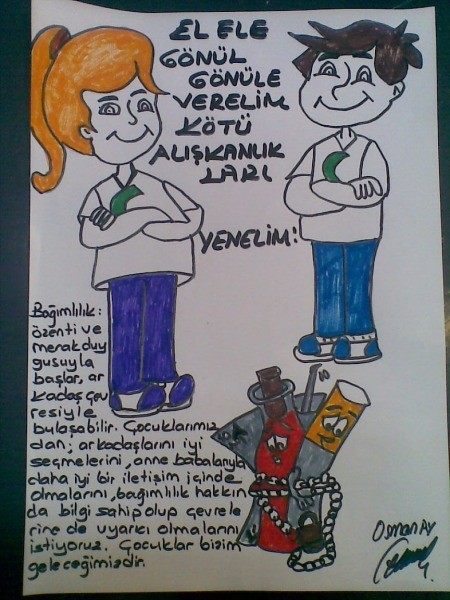 EL ELE
GÖNÜL
GÖNÜLE
VERELİM
KÖTÜ
ALIŞKANLIK
LARI
YENELİM!
Bağımlılık:
özenti ve
merak duy
gusuyla
başlar, ar
kadaş çev
resiyle
bulaşabilir. Çocuklarımız
dan; arkadaşlarını iyi
seçmelerini, anne babalarıyla
daha iyi bir iletişim içinde
olmalarını, bağımlılık hakkın
da bilgi sahip olup çevrele
rine de uyarıcı olmalarını
istiyoruz. Çocuklar bizim
geleceğimizdir.
Osman AY